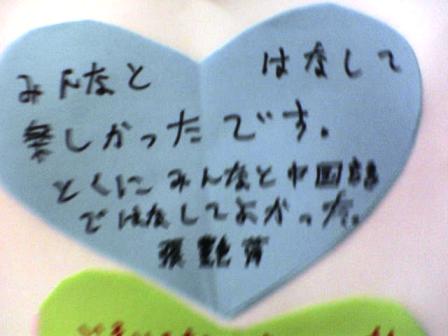 みんなと はなして
楽しかったです。
とくにみんなと中国語
ではなしてよかった。
張艶